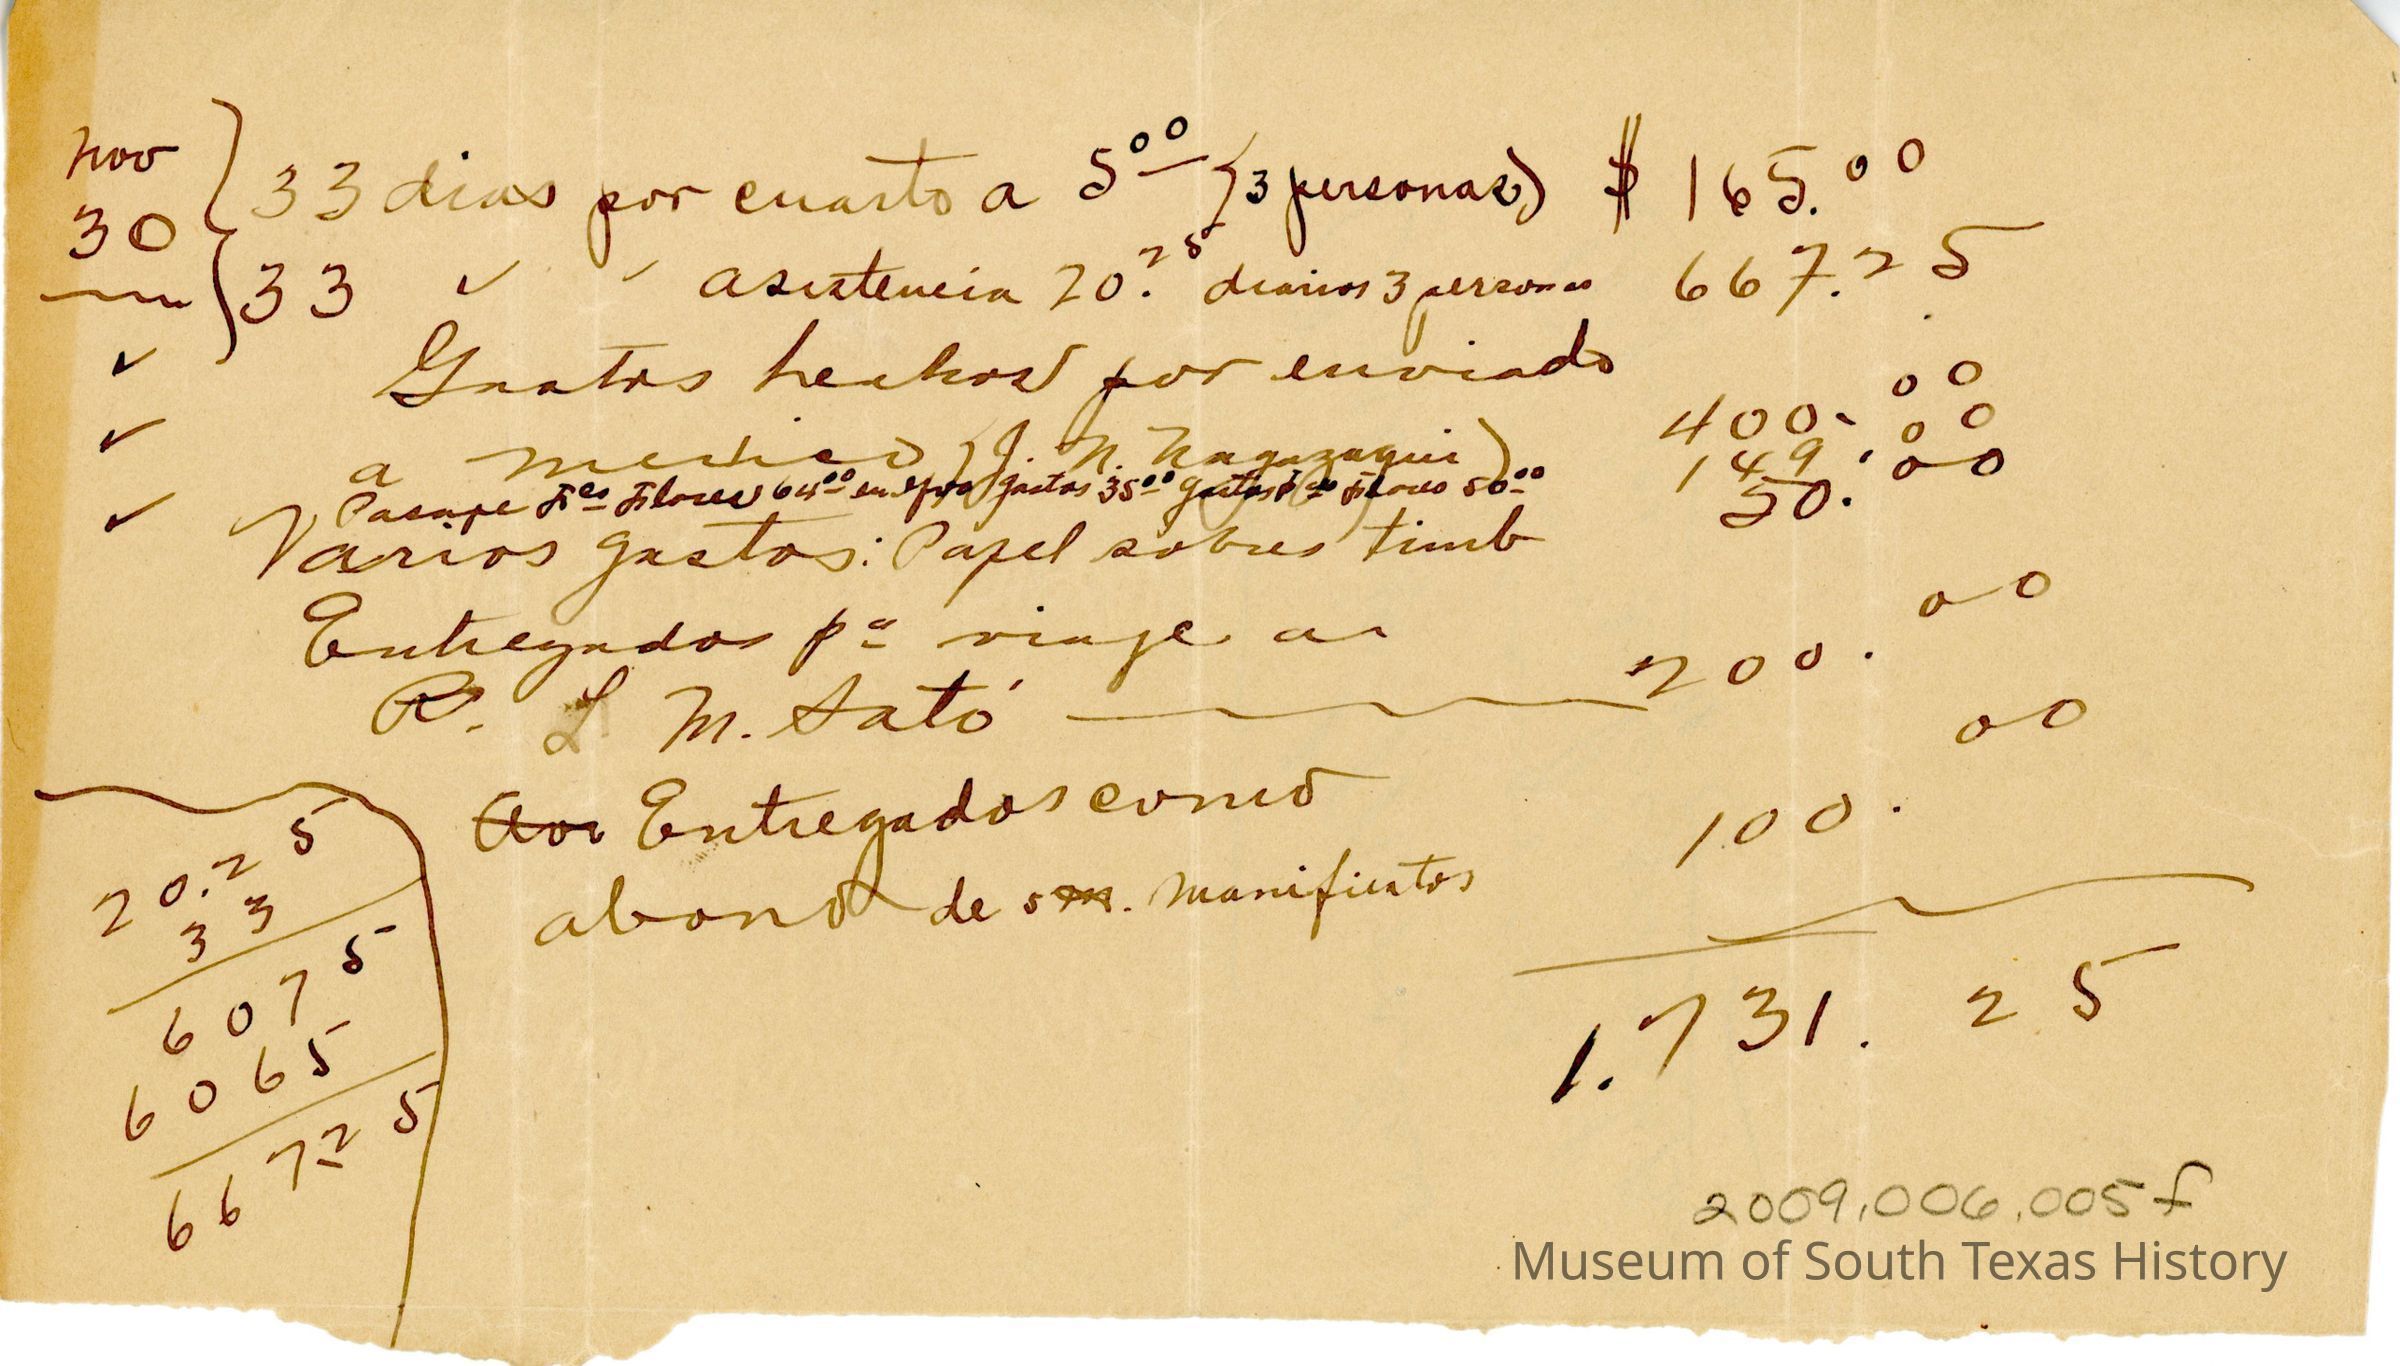 Nov
30
33 dias por cuarto a 5.00 (3 personas) $ 165.00
33 " " asistencia 20.25 diarios 3 personas 667.25
Gastos hechos por enviado
a Mexico (J. N. Nagazaqui) 400.00
Pasaje Fco Flores 64.00 gastos 35.00 Gastos Fco Flores 50.00 149.00
Varios gastos: Papel sobres timb 50.00
Entregados pa viaje a
R. L M. Sató 200.00
Entregados como
abono de Manifiestos 100.00
1.731.25
20.25
33
6075
6065
66725
2009.006.005f
Museum of South Texas History